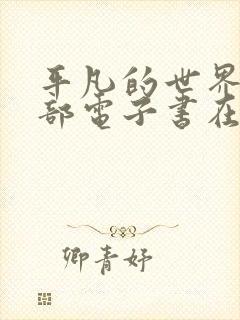 平凡的世界
部电子书在
卿青妤